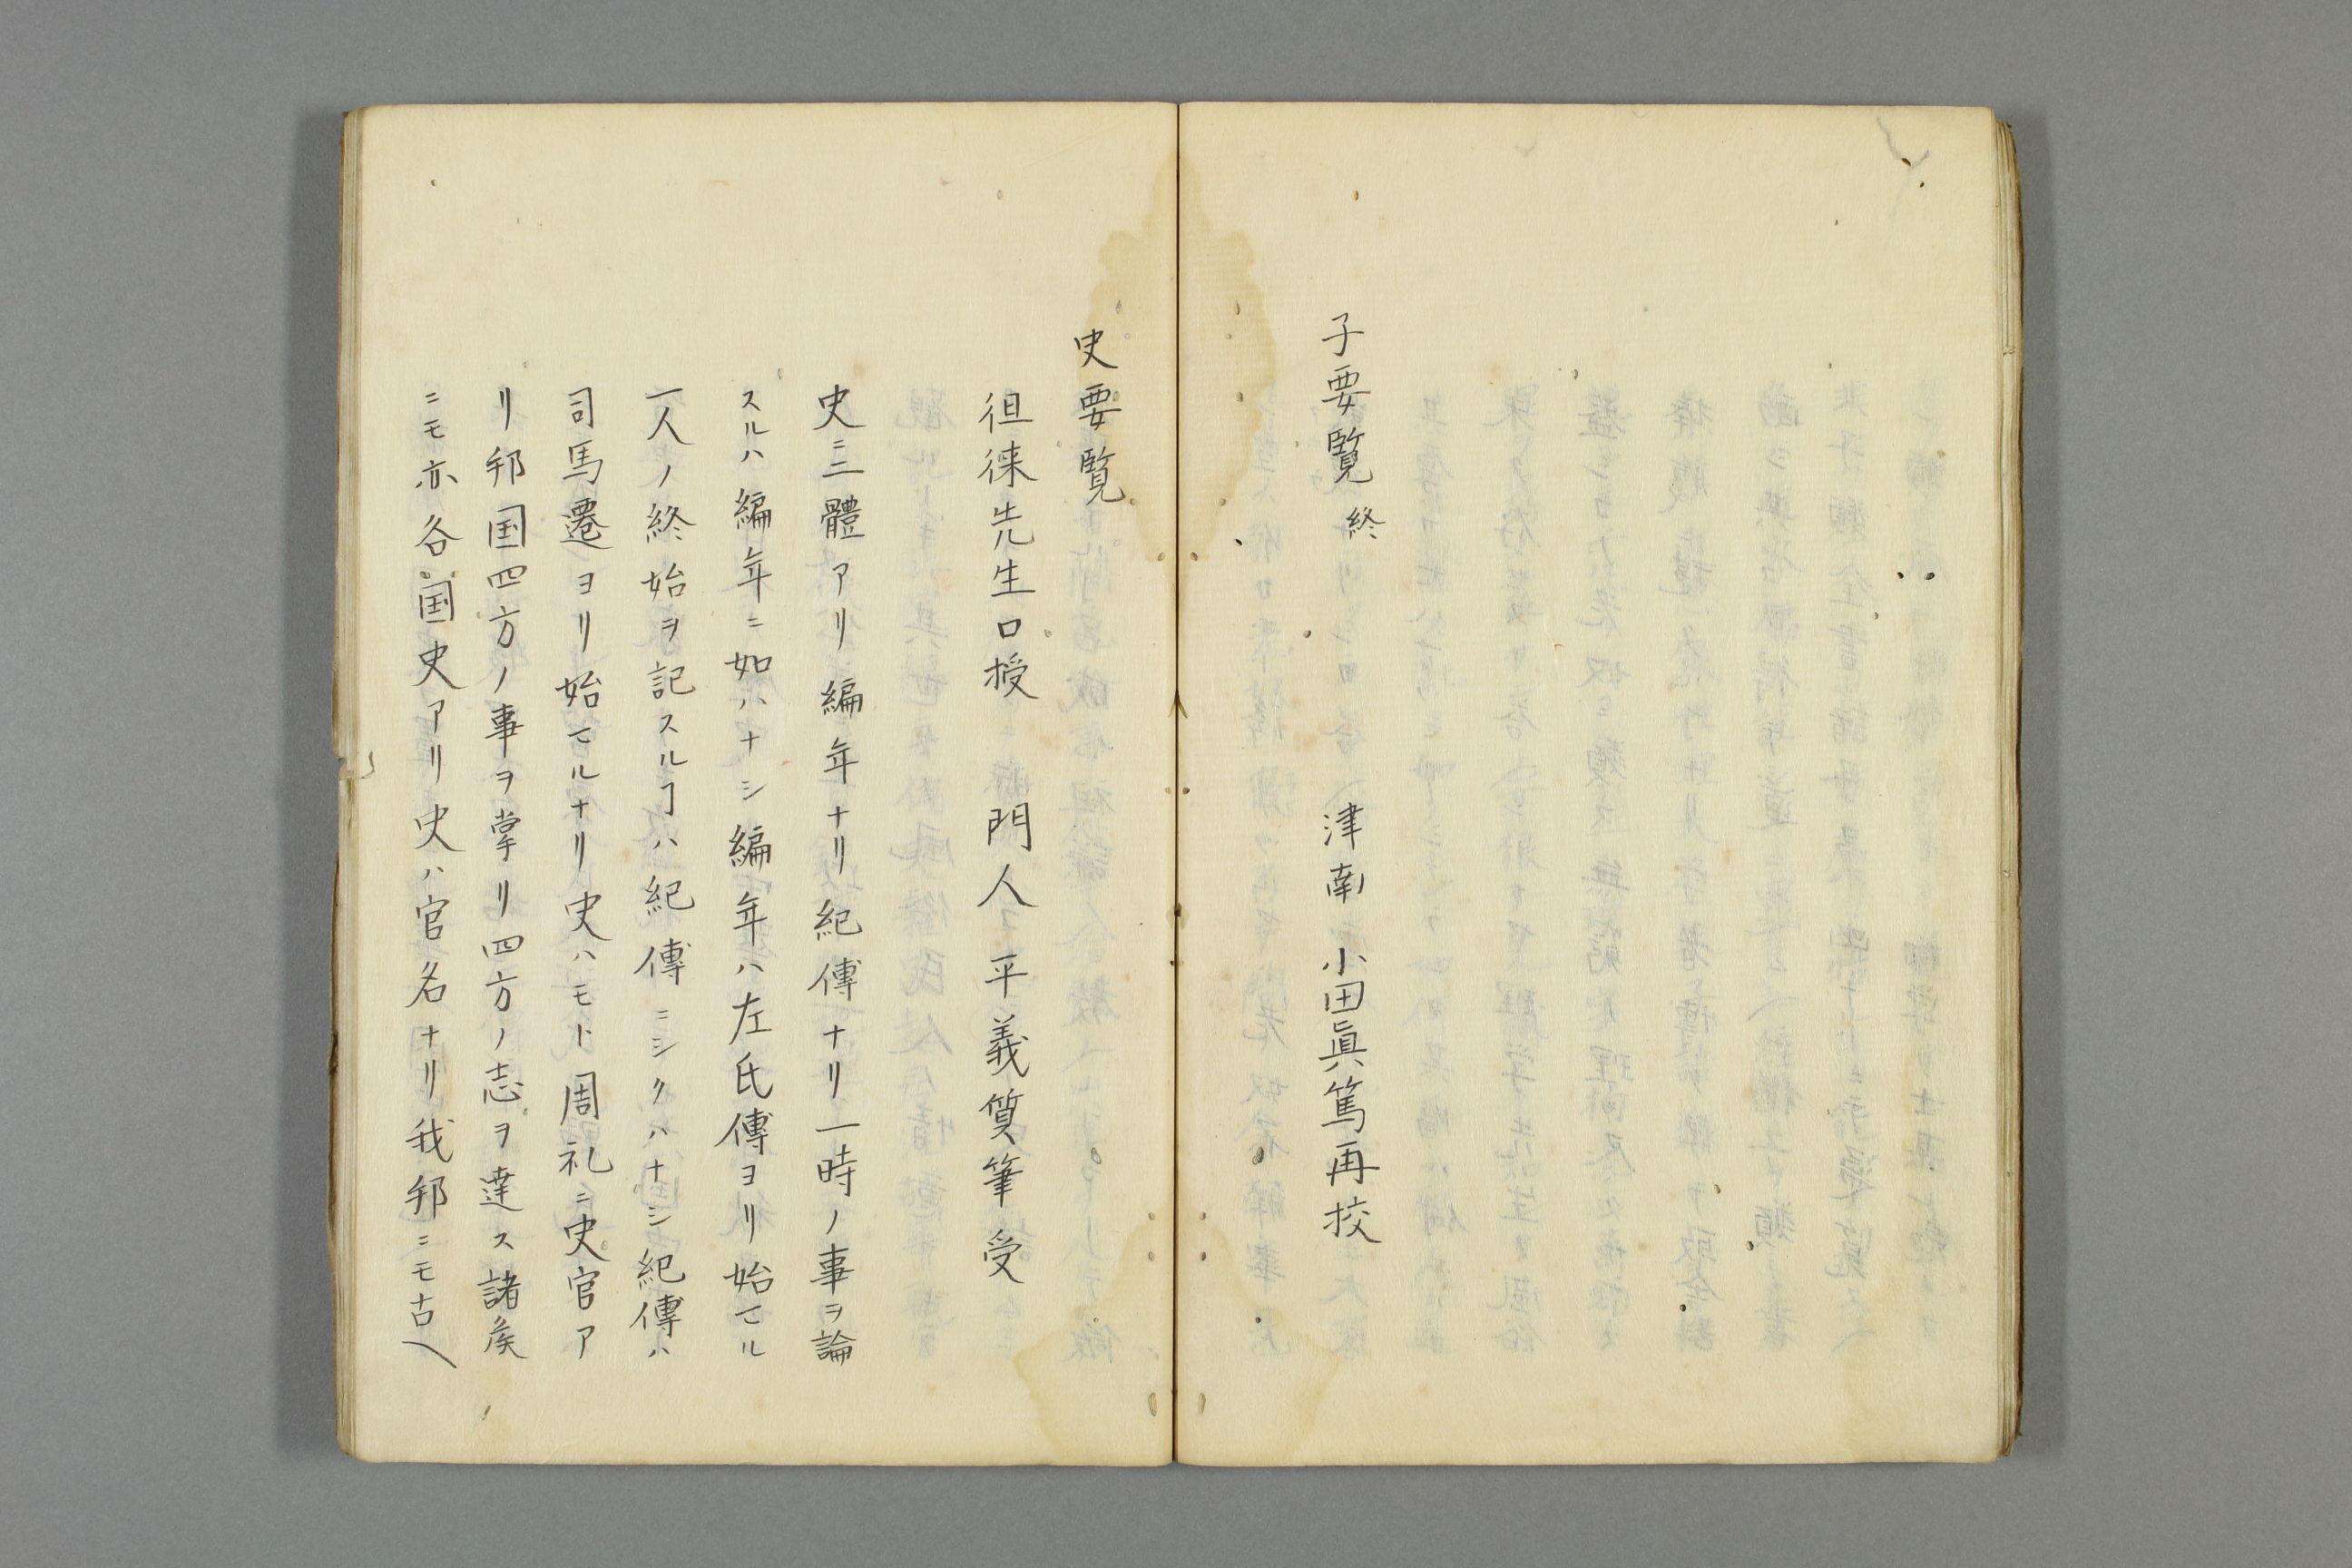 子要覧 終　津南 小田眞篤再挍
史要覧
徂徠先生口授　門人 平義質筆受
史ニ二體アリ編年ナリ紀傳ナリ一時ノ事ヲ論
スルハ編年ニ如ハナシ編年ハ左氏傳ヨリ始マル
一人ノ終始ヲ記スルヿハ紀傳ニシクハナシ紀傳ハ
司馬遷ヨリ始マルナリ史ハモト周礼ニ史官ア
リ邦国四方ノ事ヲ掌リ四方ノ志ヲ達ス諸矦
ニモ亦各国史アリ史ハ官名ナリ我邦ニモ古ヘ